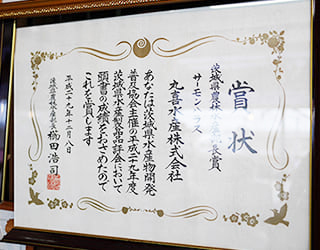 賞状
茨城県農林水産部長賞
サーモントラス
丸喜水産株式会社
あなたは茨城県水産物開発
普及協会主催の平成二十九年度
茨城県水産製品品評会において
頭書の成績をおさめたので
これを賞します
平成二十九年十二月八日
茨城県農林水産部長 橘田浩司